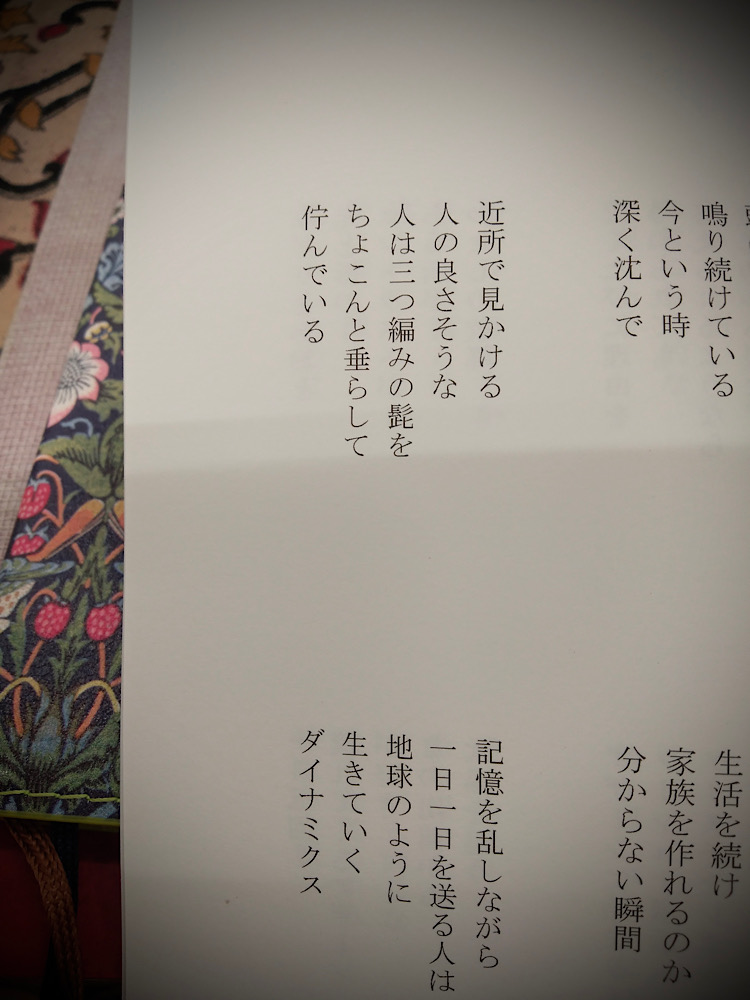 鳴り続けている
今という時
深く沈んで
近所で見かける
人の良さそうな
人は三つ編みの髭を
ちょこんと垂らして
佇んでいる
生活を続け
家族を作れるのか
分からない瞬間
記憶を乱しながら
一日一日を送る人は
地球のように
生きていく
ダイナミクス